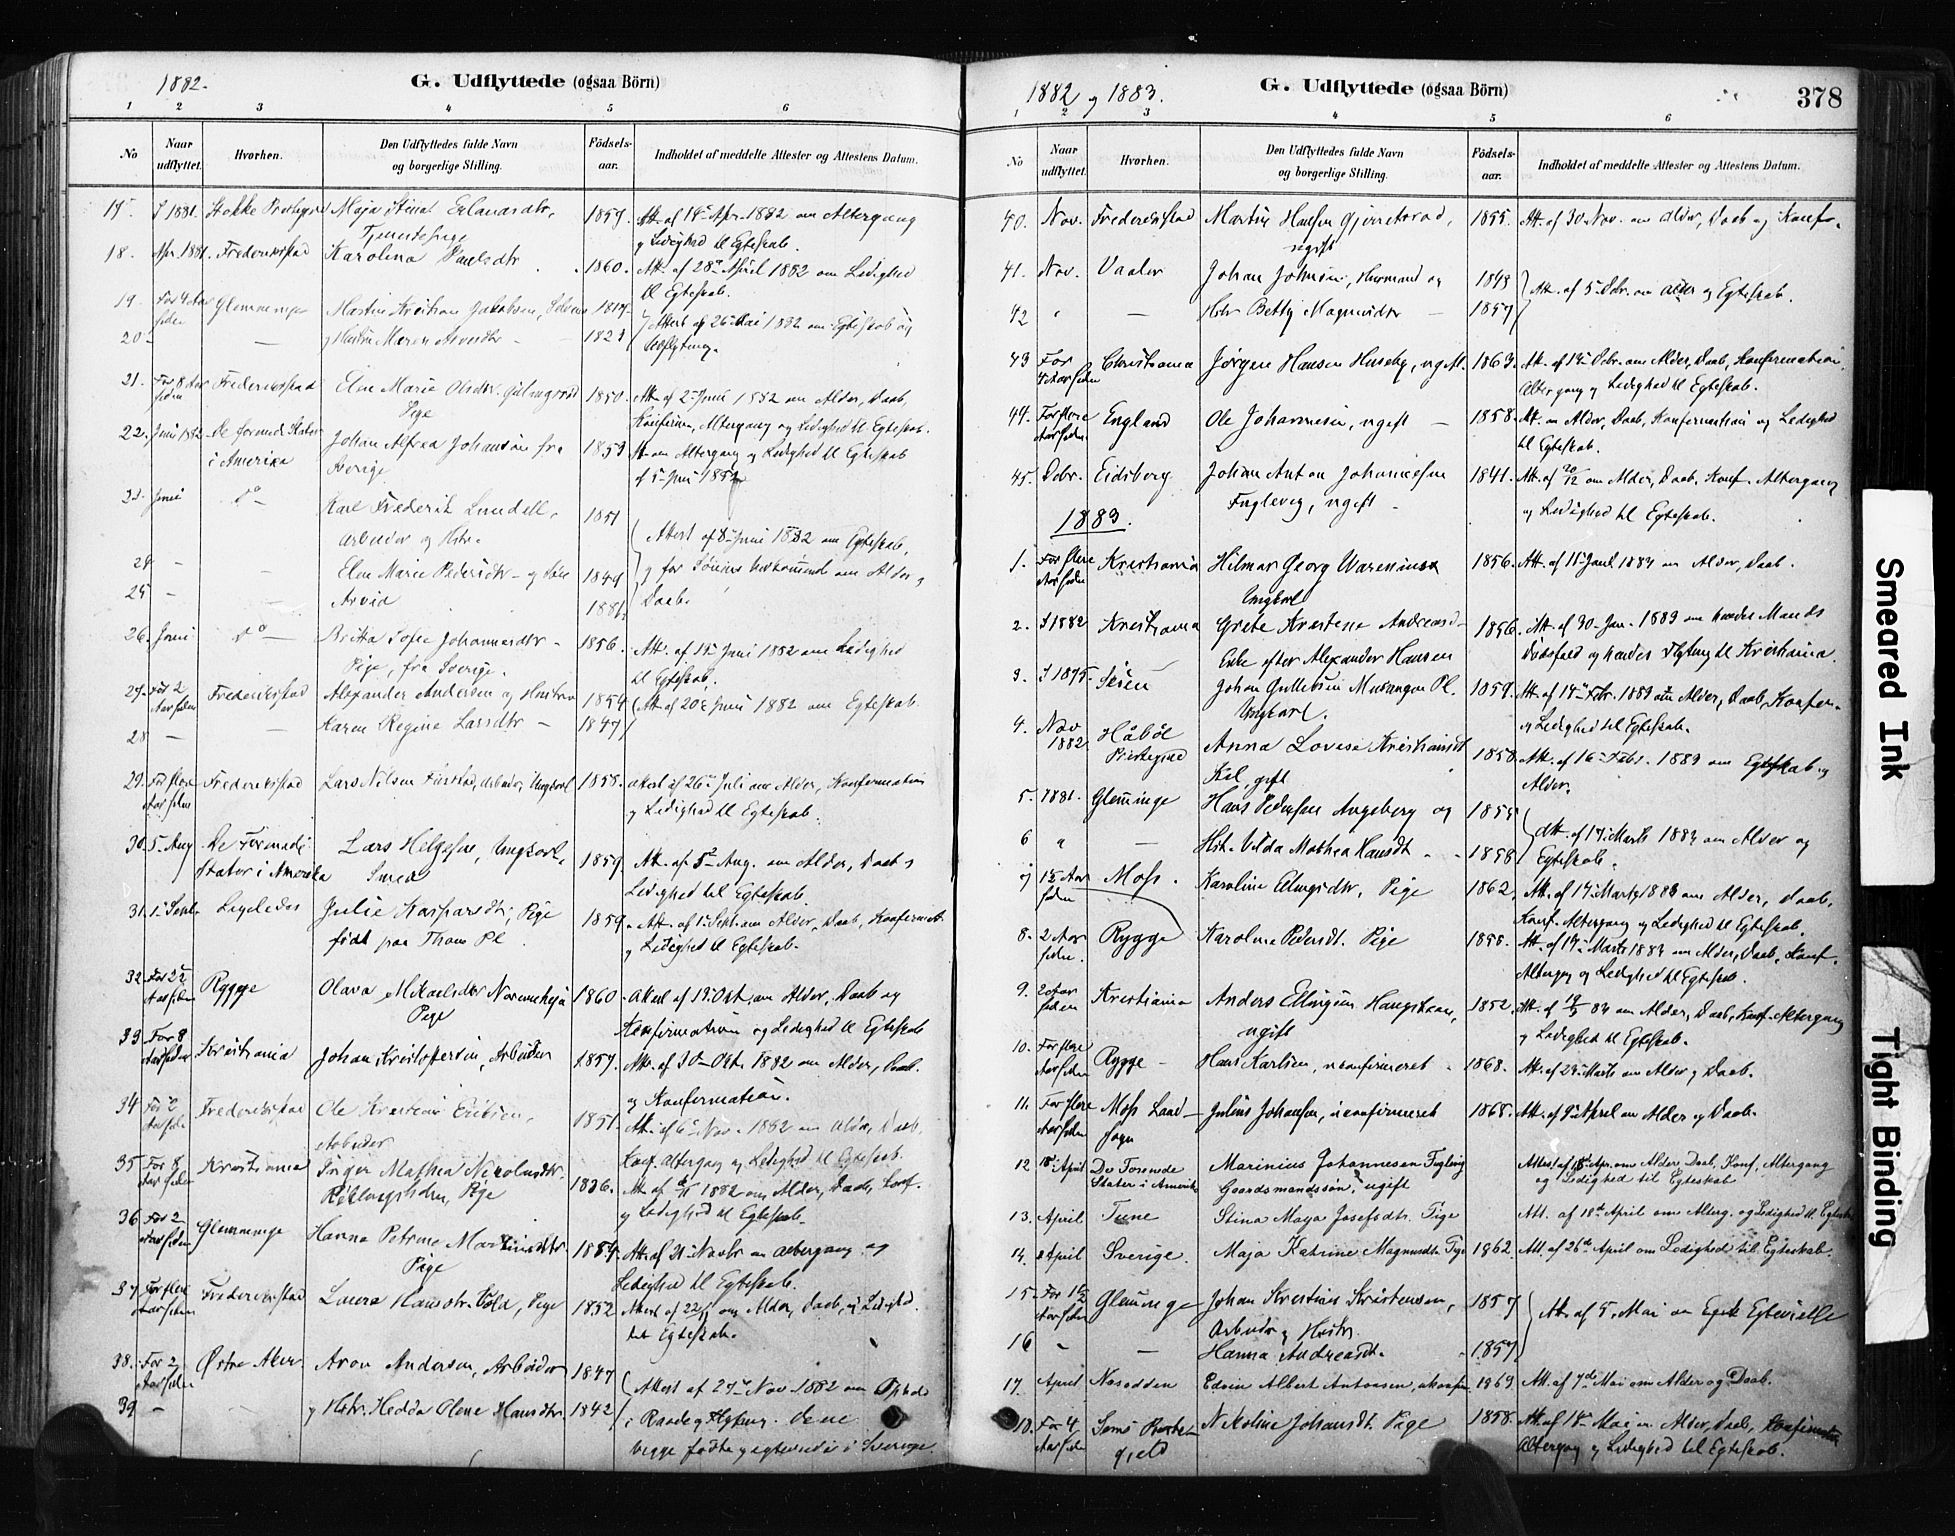 1882.
G. Udflyttede (ogsaa Börn)
1 2 3 4 5 6
No Naar udflyttet. Hvorhen. Den Udflyttedes fulde Navn og borgerlige Stilling. Födsels-aar. Indholdet af meddelte Attester og Attestens Datum.
17. I 1881. Stokke Maja Stina 1859. Att. af 14 Apr. 1882 om Altergang
Tjenestepige og Ledighed til Egteskab.
18. Apr. 1881. Frederikstad Karolina Paulsdtr 1860. Att. af 28 April 1882 om Ledighed
til Egteskab.
19. For 4 Aar siden Glemminge Martin Kristian Jakobsen, Attest af 26 Mai 1882 om Egteskab og
20. — Hustru Maren 1823 Udflytning.
21. For 8 Aar siden Frederikstad Elen Marie Olsdtr. 1850. Att. af 2 Juni 1882 om Alder, Daab,
Pige Konfirm., Altergang og Ledighed til Egteskab.
22. Juni 1882 De forenede Stater i Amerika Johan Alfred Johanson fra 1853 Att. om Altergang og Ledighed til Egteskab
Sverige af 5 Juni 1882
23. Juni do Karl Frederik Lundell, 1851
Arbeider og Hstr. Attest af 8 Juni 1882 om Egteskab,
24 - - Elen Marie Pedersdtr - og Søn 1849 og for Sønnens vedkommende om Alder og
25 - - Arvid 1881. Daab.
26. Juni do Britta Sofie Johannesdtr - 1856. Att. af 15 Juni 1882 om Ledighed
Pige, fra Sverige. til Egteskab.
27. For 2 Aar siden Frederikstad Alexander Andersen og Hustru 1854 Att. af 20 Juni 1882 om Egteskab.
28 - - Karen Regine Larsdtr - 1847
29. For flere Aar siden Frederikstad Lars Nilsen Arbeider, Ungkarl 1858. Attest af 26 Juli om Alder, Konfirmation
og Ledighed til Egteskab.
30. 5. Aug De Forenede Stater i Amerika Lars Helgesen, Ungkarl, 1859. Att. af 5 Aug. om Alder, Daab og
Smed Ledighed til Egteskab.
31. 1. Sept. Ligeledes Julie Kasparsdtr, Pige 1859. Att. af 1 Sept. om Alder, Daab, Konfirmat.
født paa Thom Pl. og Ledighed til Egteskab.
32. Rygge Olava Mikaelsdtr 1860. Attest af 19 Okt. om Alder, Daab og
Pige Konfirmation og Ledighed til Egteskab
33 For 8 Aar siden Kristiania Johan Kristofersen, Arbeider 1857. Att. af 30 Okt. 1882 om Alder, Daab.
og Konfirmation.
34 For 2 Aar siden Frederikstad Ole Kristian Eriksen, 1851. Att. af 6 Nov. 1882 om Alder, Daab.
Arbeider Konf. Altergang og Ledighed til Egteskab.
35 For 8 Aar siden Kristiania Mathea Nikolaisdtr. 1836. Att. af 1882 om Alder, Daab, Konf.
Pige og Ledighed til Egteskab.
36 For 2 Aar siden Glemminge Hanna Petrine Martinsdtr. 1854. Att. af 21 Novbr. om Altergang og
Pige Ledighed til Egteskab.
37 For flere Aar siden Frederikstad Laura Hansdtr. Vold, Pige 1852 Attest af 22/11 om Alder, Daab, og Ledighed
til Egteskab.
38. For 2 Aar siden Østre Aker Aron Andersen, Arbeider 1847 Attest af 27 Nov. 1882 om Ophold
39 - - og Hstr. Hedda Olene Hansdtr. 1842 i Raade og Flytning. Denne
begge fødte og egteviede i Sverige.
1882 og 1883.
G. Udflyttede (ogsaa Börn)
378
1 2 3 4 5 6
No Naar udflyttet. Hvorhen. Den Udflyttedes fulde Navn og borgerlige Stilling. Födsels-aar. Indholdet af meddelte Attester og Attestens Datum.
40. Nov. Frederikstad Martin Hansen 1855. Att. af 30 Nov. om Alder, Daab og Konf.
ugift
41. Nov. Vaaler Johan Johnsen, Husmand og 1843 Att. af 5 Dcbr. om Alder og Egteskab.
42 " — Hstr Betty Magnusdtr - 1857
43 For 4 Aar siden Christiania Jørgen Hansen Huseby, ugift. 1863. Att. af 13 Dcbr. om Alder, Daab, Konfirmation,
Altergang og Ledighed til Egteskab.
44. For flere Aar siden England Ole Johannesen, ugift - 1858. Att. om Alder, Daab, Konfirmation og Ledighed
til Egteskab.
45. Dcbr. Eidsberg Johan Anton Johannesen 1841. Att. af 20/12 om Alder, Daab, Konf. Altergang
Fuglevig, ugift - og Ledighed til Egteskab.
1883.
1. For flere Aar siden Kristiania Hilmar Georg 1856. Att. af 15 Janl 1883 om Alder, Daab.
Ungkarl
2. I 1882 Kristiania Grete Kristene Andreasd- 1856. Att. af 30 Jan. 1883 om hendes Mands
Enke efter Alexander Hansen Dødsfald og hendes Flytning til Kristiania.
3. I 1875 Skien Johan Gulliksen Pl. 1859. Att. af 14 Febr. 1883 om Alder, Daab, Konfir-
Ungkarl. og Ledighed til Egteskab.
4. Nov 1882 Håbøl Præstegjeld Anna Lovise Kristiansdt 1858. Att. af 16 Febr. 1883 om Egteskab og
gift Alder.
5. 1881. Glemminge Hans Pedersen Augeberg og 1855 Att. af 17 Marts 1883 om Alder og
6 " — Hst. Vilda Mathea Hansdt. 1858 Egteskab.
7 1½ Aar siden Moss. Karoline Pige 1862. Att. af 17 Marts 1883 om Alder, Daab,
Konf. Altergang og Ledighed til Egteskab.
8. 2 Aar siden. Rygge Karoline Pedersdt. Pige 1858. Att. af 17 Marts 1883 om Alder, Daab, Konf.
Altergang og Ledighed til Egteskab.
9. Kristiania Anders 1852. Att. af 19/3 83 om Alder, Daab, Konf. Altergang
ugift og Ledighed til Egteskab.
10. For flere Aar siden Rygge - Hans Karlsen, ukonfirmeret 1868. Att. af 29 Marts om Alder og Daab.
11. For flere Aar siden Moss Land-sogn Julius Johansen, ukonfirmeret 1868. Att. af 9 April om Alder og Daab.
12 18 April De Forenede Stater i Amerika Marinius Johannesen Fuglevig Attest af 18 Apr. om Alder Daab, Konf. Altergang
Gaardmandssøn, ugift og Ledighed til Egteskab
13. April Tune Stina Maja Josefsdtr. Pige Att. af 18de April om Alterg. og Ledighed til Egteskab
14. April Sverige. Maja Katrine Magnusdt Pige 1862 Att. af 26de April om Ledighed til Egteskab.
15. For 1½ Aar siden Glemminge Johan Kristian Kristensen, 1857 Att. af 5. Mai om Egtevielse
Arbeider og Hustr.
16 " — Hanna Andreasdt. 1857
17. April Nesodden Edvin Albert Antonsen, ukonfir. 1869 Att. af 7de Mai om Alder og Daab.
18. For 4 Aar siden Sems Præste-gjeld Nikoline Johansdt. Pige 1858. Att. af 18 Mai om Alder, Daab, Konfirmation
Altergang og Ledighed til Egteskab.
Smeared Ink
Tight Binding